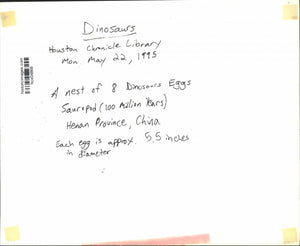 Dinosaurs
Houston Chronicle Library
Mon. May 22, 1995
A nest of 8 Dinosaurs Eggs
Sauropod (100 Million Years)
Henan Province, China
Each egg is approx. 5.5 inches
in diameter